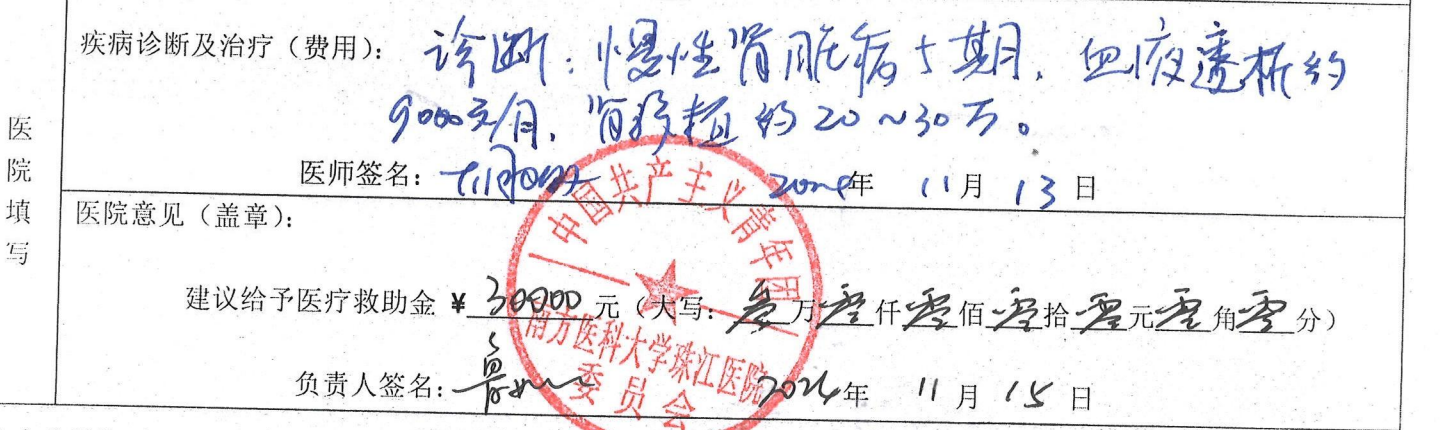 疾病诊断及治疗（费用）：诊断：慢性肾脏病5期，血液透析约
9000元/月，肾移植约20~30万。
医师签名： 年 11月 13日
医院填写
医院意见（盖章）：
建议给予医疗救助金￥30000元（大写：叁万零仟零佰零拾零元零角零分）
负责人签名： 2024年 11月 15日
中国共产主义青年团
南方医科大学珠江医院
委员会